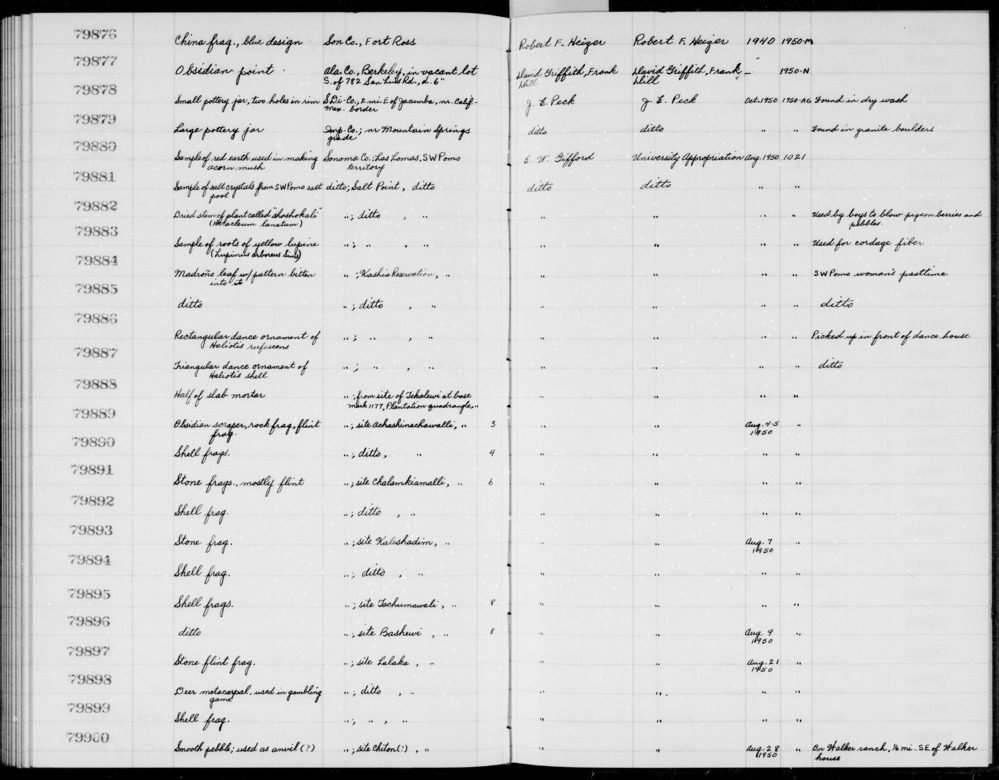 79876
China frag., blue design Son Co., Fort Ross Robert F. Heizer Robert F. Heizer 1940 1950-M
79877
Obsidian point Ala. Co., Berkeley, in vacant lot David Griffith, Frank David Griffith, Frank — 1950-N
S. of 782 San Luis Rd., d. 6" Hill Hill
79878
Small pottery jar, two holes in rim S.Di-Co., 2 mi. E of Jacumba, nr. Calif.- J. E. Peck J. E. Peck Oct. 1950 1950-AG Found in dry wash
Mex. border
79879
Large pottery jar Imp-Co.; nr Mountain Springs ditto ditto " " Found in granite boulders
grade
79880
Sample of red earth used in making Sonoma Co.; Las Lomas, SW Pomo E. W. Gifford University Appropriation Aug. 1950 1021
acorn mush territory
79881
Sample of salt crystals from SW Pomo salt ditto; Salt Point, ditto ditto ditto " "
pool
79882
Dried stem of plant called "shoshokali" "; ditto , " " " " " Used by boys to blow pigeon berries and
(Heracleum lanatum) pebbles.
79883
Sample of roots of yellow lupine "; " , " " " " " Used for cordage fiber
(Lupinus arboreus Sims)
79884
Madroño leaf w/ pattern bitten "; Kashia Reservation, " " " " " SW Pomo woman's pasttime
into it
79885
ditto "; ditto , " " " " " ditto
79886
Rectangular dance ornament of "; " , " " " " " Picked up in front of dance house
Haliotis rufescens
79887
Triangular dance ornament of "; " , " " " " " ditto
Haliotis shell
79888
Half of slab mortar "; from site of Tchalewi at base " " " "
mark 1177, Plantation quadrangle, "
79889
Obsidian scraper, rock frag, flint "; site Achashinachawalli, " 3 " " Aug. 4-5 "
frag. 1950
79890
Shell frags. "; ditto, " 4 " " " "
79891
Stone frags., mostly flint "; site Chalamkiamalli, " 6 " " " "
79892
Shell frag. "; ditto , " " " " "
79893
Stone frag. "; site Kabeshadim, " " " Aug. 7 "
1950
79894
Shell frag. "; ditto , " " " " "
79895
Shell frags. "; site Tachumawali, " 8 " " " "
79896
ditto "; site Bashewi , " 8 " " Aug. 9 "
1950
79897
Stone flint frag. "; site Lalaka , " " " Aug. 21 "
1950
79898
Deer metacarpal, used in gambling "; ditto , " " " " "
game
79899
Shell frag. "; " , " " " " "
79900
Smooth pebble; used as anvil (?) "; site Chiton (?) , " " " Aug. 28 " On Walker ranch, ½ mi. SE of Walker
1950 house